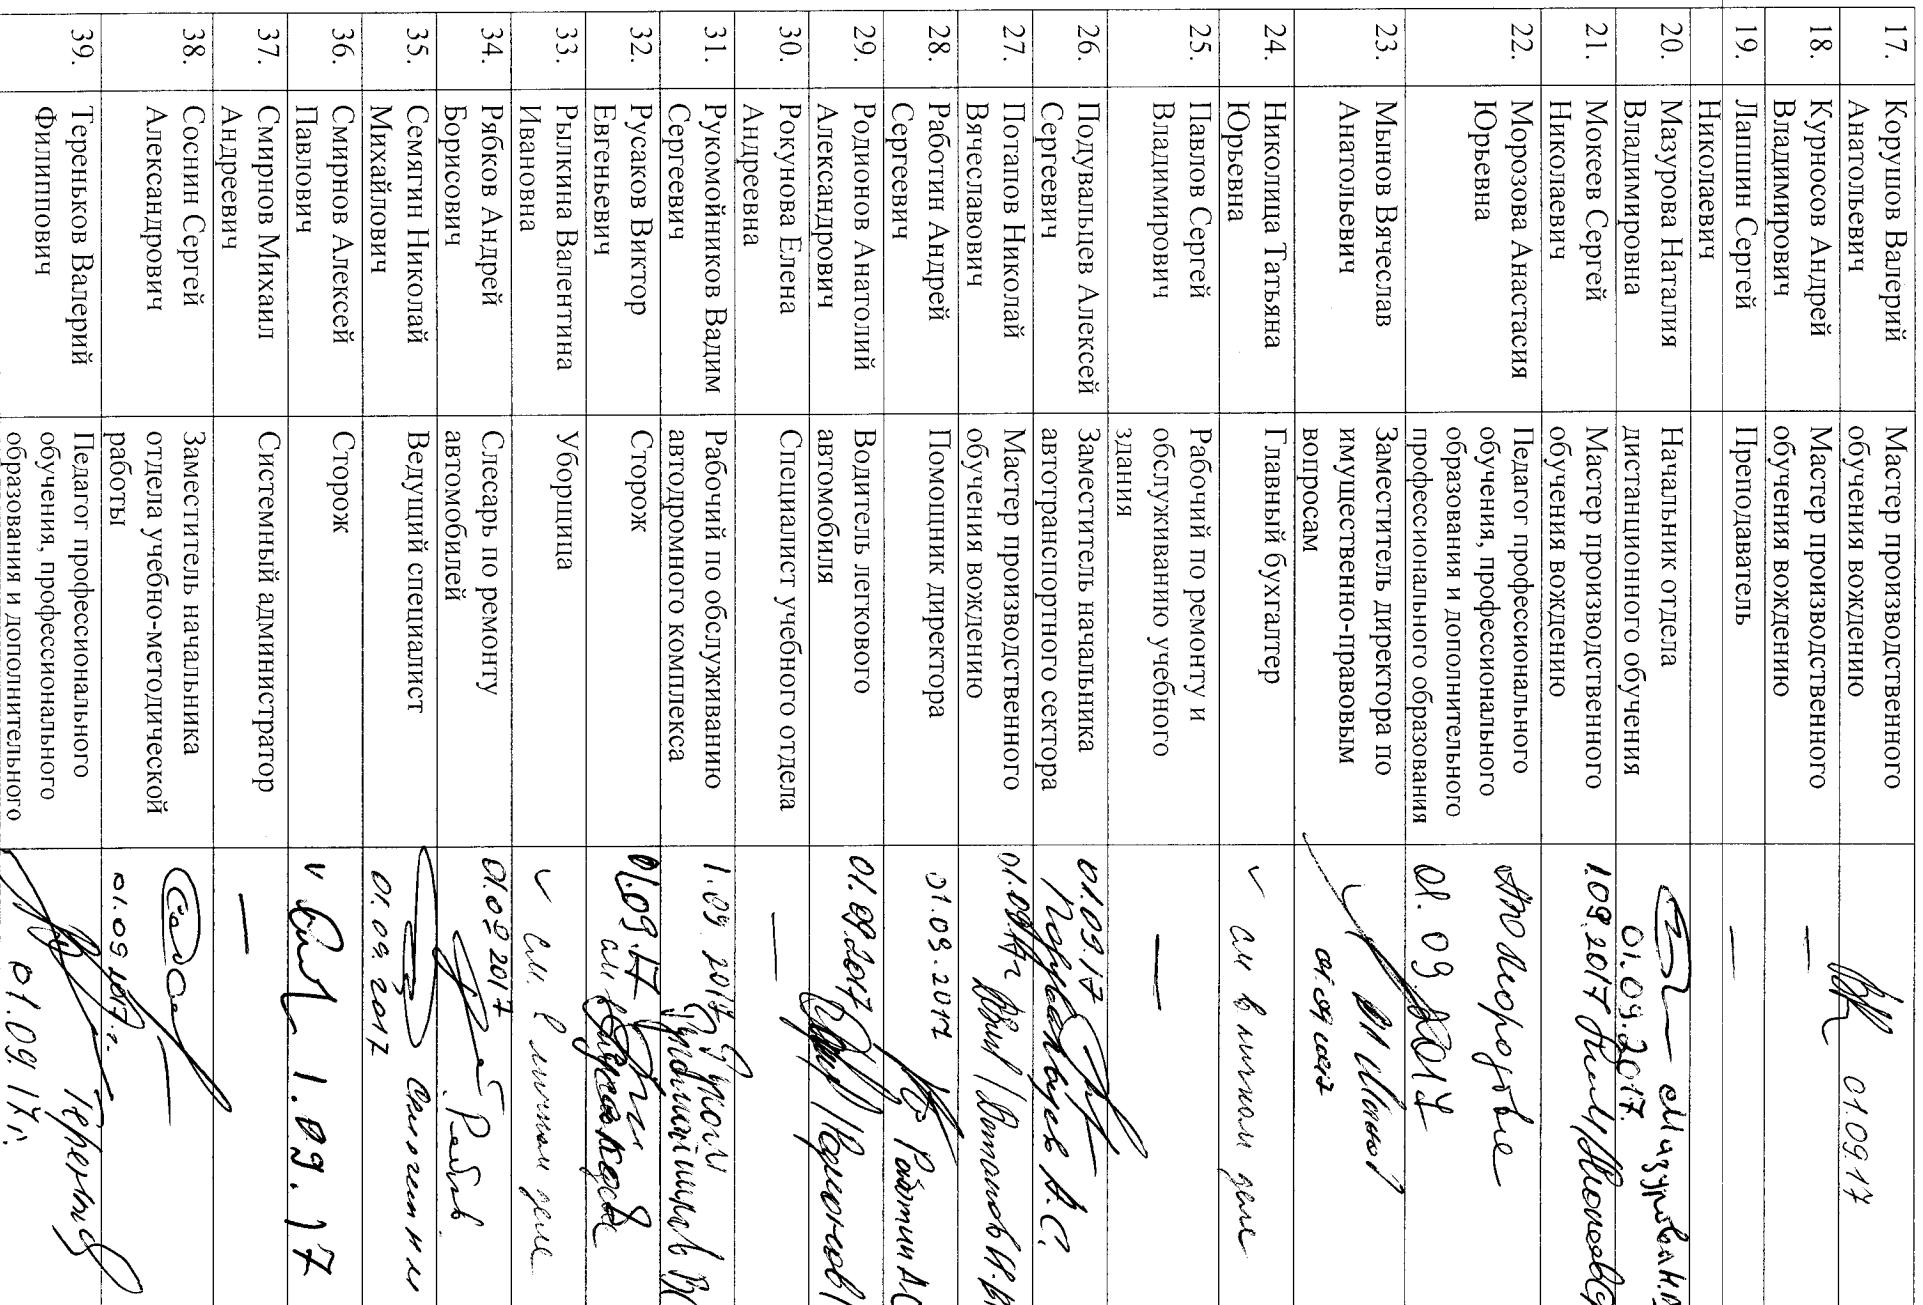 17.
Корушов Валерий
Анатольевич
Мастер производственного
обучения вождению
01.09.17
18.
Курносов Андрей
Владимирович
Мастер производственного
обучения вождению
—
19.
Лапшин Сергей
Николаевич
Преподаватель
—
20.
Мазурова Наталия
Владимировна
Начальник отдела
дистанционного обучения
01.09.2017.
21.
Мокеев Сергей
Николаевич
Мастер производственного
обучения вождению
1.09.2017
22.
Морозова Анастасия
Юрьевна
Педагог профессионального
обучения, профессионального
образования и дополнительного
профессионального образования
01.09.2017
23.
Мынов Вячеслав
Анатольевич
Заместитель директора по
имущественно-правовым
вопросам
01.09.2017
24.
Николица Татьяна
Юрьевна
Главный бухгалтер
см в личном деле
25.
Павлов Сергей
Владимирович
Рабочий по ремонту и
обслуживанию учебного
здания
—
26.
Подувальцев Алексей
Сергеевич
Заместитель начальника
автотранспортного сектора
01.09.17
Подувальцев А.С.
27.
Потапов Николай
Вячеславович
Мастер производственного
обучения вождению
01.09.17г
28.
Работин Андрей
Сергеевич
Помощник директора
01.09.2017
Работин АС
29.
Родионов Анатолий
Александрович
Водитель легкового
автомобиля
01.09.2017
/Родионов/
30.
Рокунова Елена
Андреевна
Специалист учебного отдела
—
31.
Рукомойников Вадим
Сергеевич
Рабочий по обслуживанию
автодромного комплекса
1.09.2017
32.
Русаков Виктор
Евгеньевич
Сторож
01.09.17
33.
Рылкина Валентина
Ивановна
Уборщица
см. в личном деле
34.
Рябков Андрей
Борисович
Слесарь по ремонту
автомобилей
01.09.2017
35.
Семягин Николай
Михайлович
Ведущий специалист
01.09.2017
36.
Смирнов Алексей
Павлович
Сторож
1.09.17
37.
Смирнов Михаил
Андреевич
Системный администратор
—
38.
Соснин Сергей
Александрович
Заместитель начальника
отдела учебно-методической
работы
01.09.2017г.
39.
Тереньков Валерий
Филиппович
Педагог профессионального
обучения, профессионального
образования и дополнительного
01.09.17г.